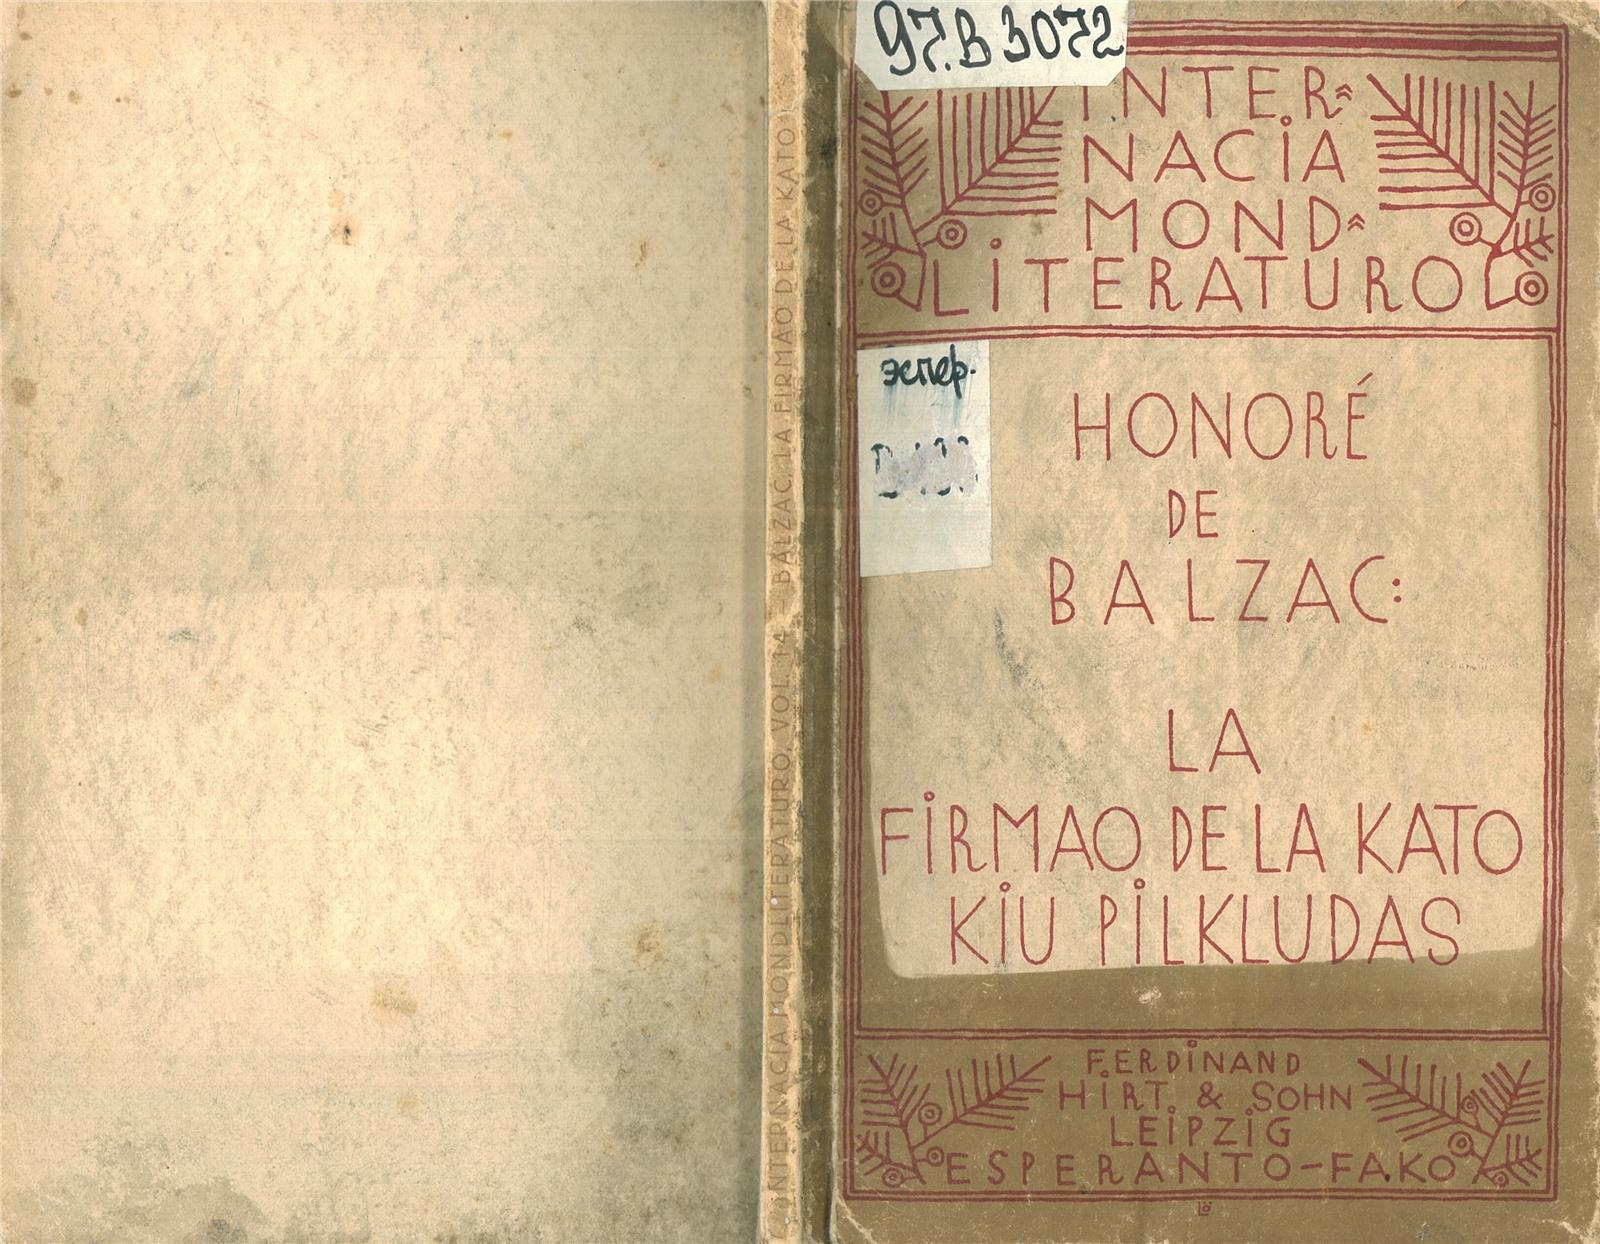 97.В 3072
INTER-
NACIA
MOND-
LITERATURO
эспер.
HONORÉ
DE
BALZAC:
LA
FIRMAO DE LA KATO
KIU PILKLUDAS
FERDINAND
HIRT & SOHN
LEIPZIG
ESPERANTO-FAKO
INTERNACIA MONDLITERATURO. VOL. 14 – BALZAC, LA FIRMAO DE LA KATO